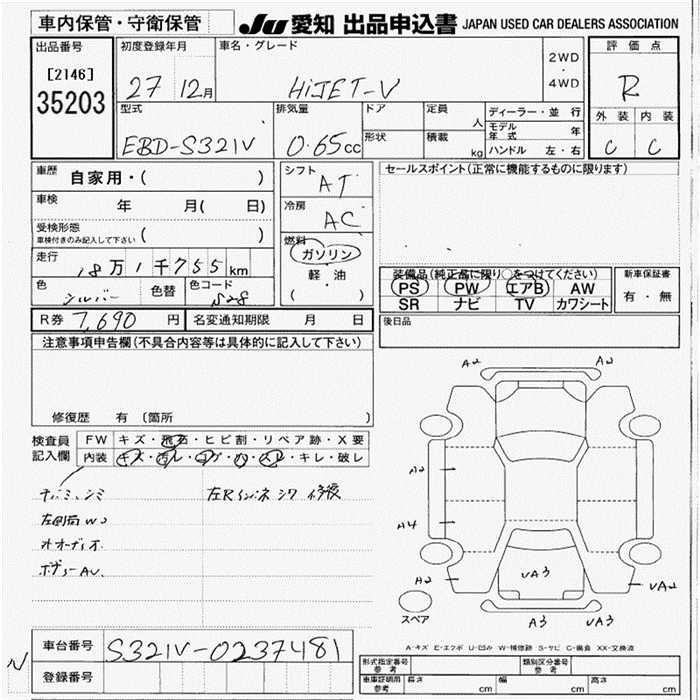 車内保管・守衛保管
JU 愛知 出品申込書 JAPAN USED CAR DEALERS ASSOCIATION
出品番号
[2146]
35203
初度登録年月
27 12月
車名・グレード
HiJET-V
2WD
・
4WD
評価点
R
外装 内装
C C
型式
EBD-S321V
排気量
0.65cc
ドア
形状
定員
人
積載
kg
ディーラー・並行
モデル年式 年
ハンドル 左・右
車歴
自家用・( )
車検
年 月( 日)
受検形態
車検付きのみ記入して下さい ( )
走行
18万1千755km
色
シルバー
色替
色コード
S28
シフト
AT
冷房
AC
燃料
ガソリン
軽・油
( ・ )
セールスポイント(正常に機能するものに限ります)
装備品(純正品に限り○をつけてください)
PS PW エアB AW
SR ナビ TV カワシート
新車保証書
有・無
R券 7,690円
名変通知期限 月 日
後日品
注意事項申告欄(不具合内容等は具体的に記入して下さい)
修復歴 有 〔箇所 〕
検査員記入欄
FW キズ・飛石・ヒビ割・リペア跡・X要
内装 キズ・汚レ・コゲ・穴・スレ・キレ・破レ
左Rインネ シワ 修複
A2 A2
A2
A4
A2
UA3
UA2
A3 UA3
スペア
A-キズ E-エクボ U-凹み W-補修跡 S-サビ C-腐食 XX-交換済
車台番号
S321V-0237481
登録番号
形式指定番号
参考
類別区分番号
参考
車庫証明用
参考
長さ cm
幅 cm
高さ cm